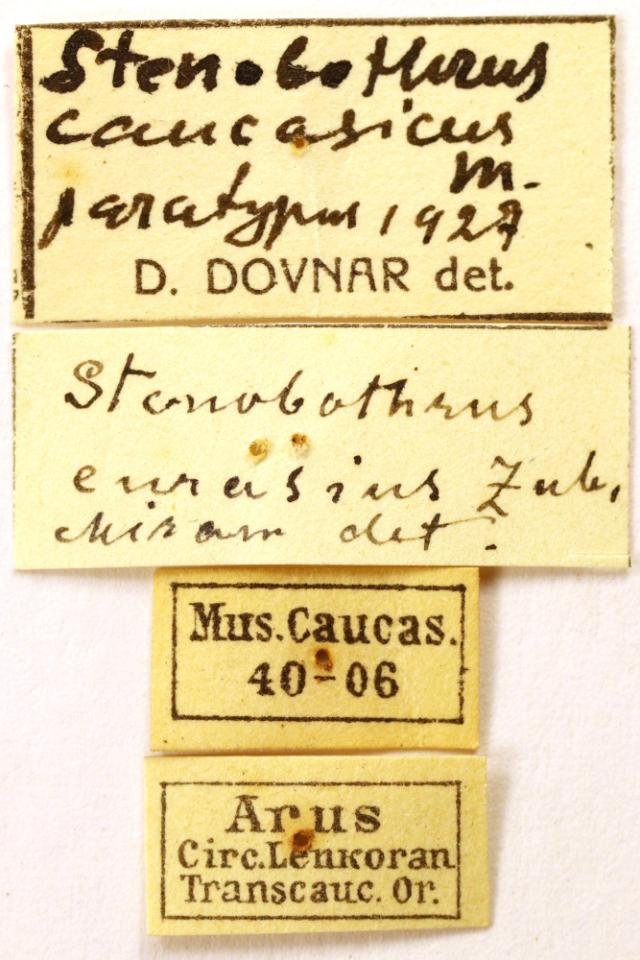 Stenobothrus
caucasicus
m.
paratypus 1927
D. DOVNAR det.
Stenobothrus
eurasius Zub.
Miram det.
Mus. Caucas.
40-06
Arus
Circ. Lenkoran
Transcauc. Or.